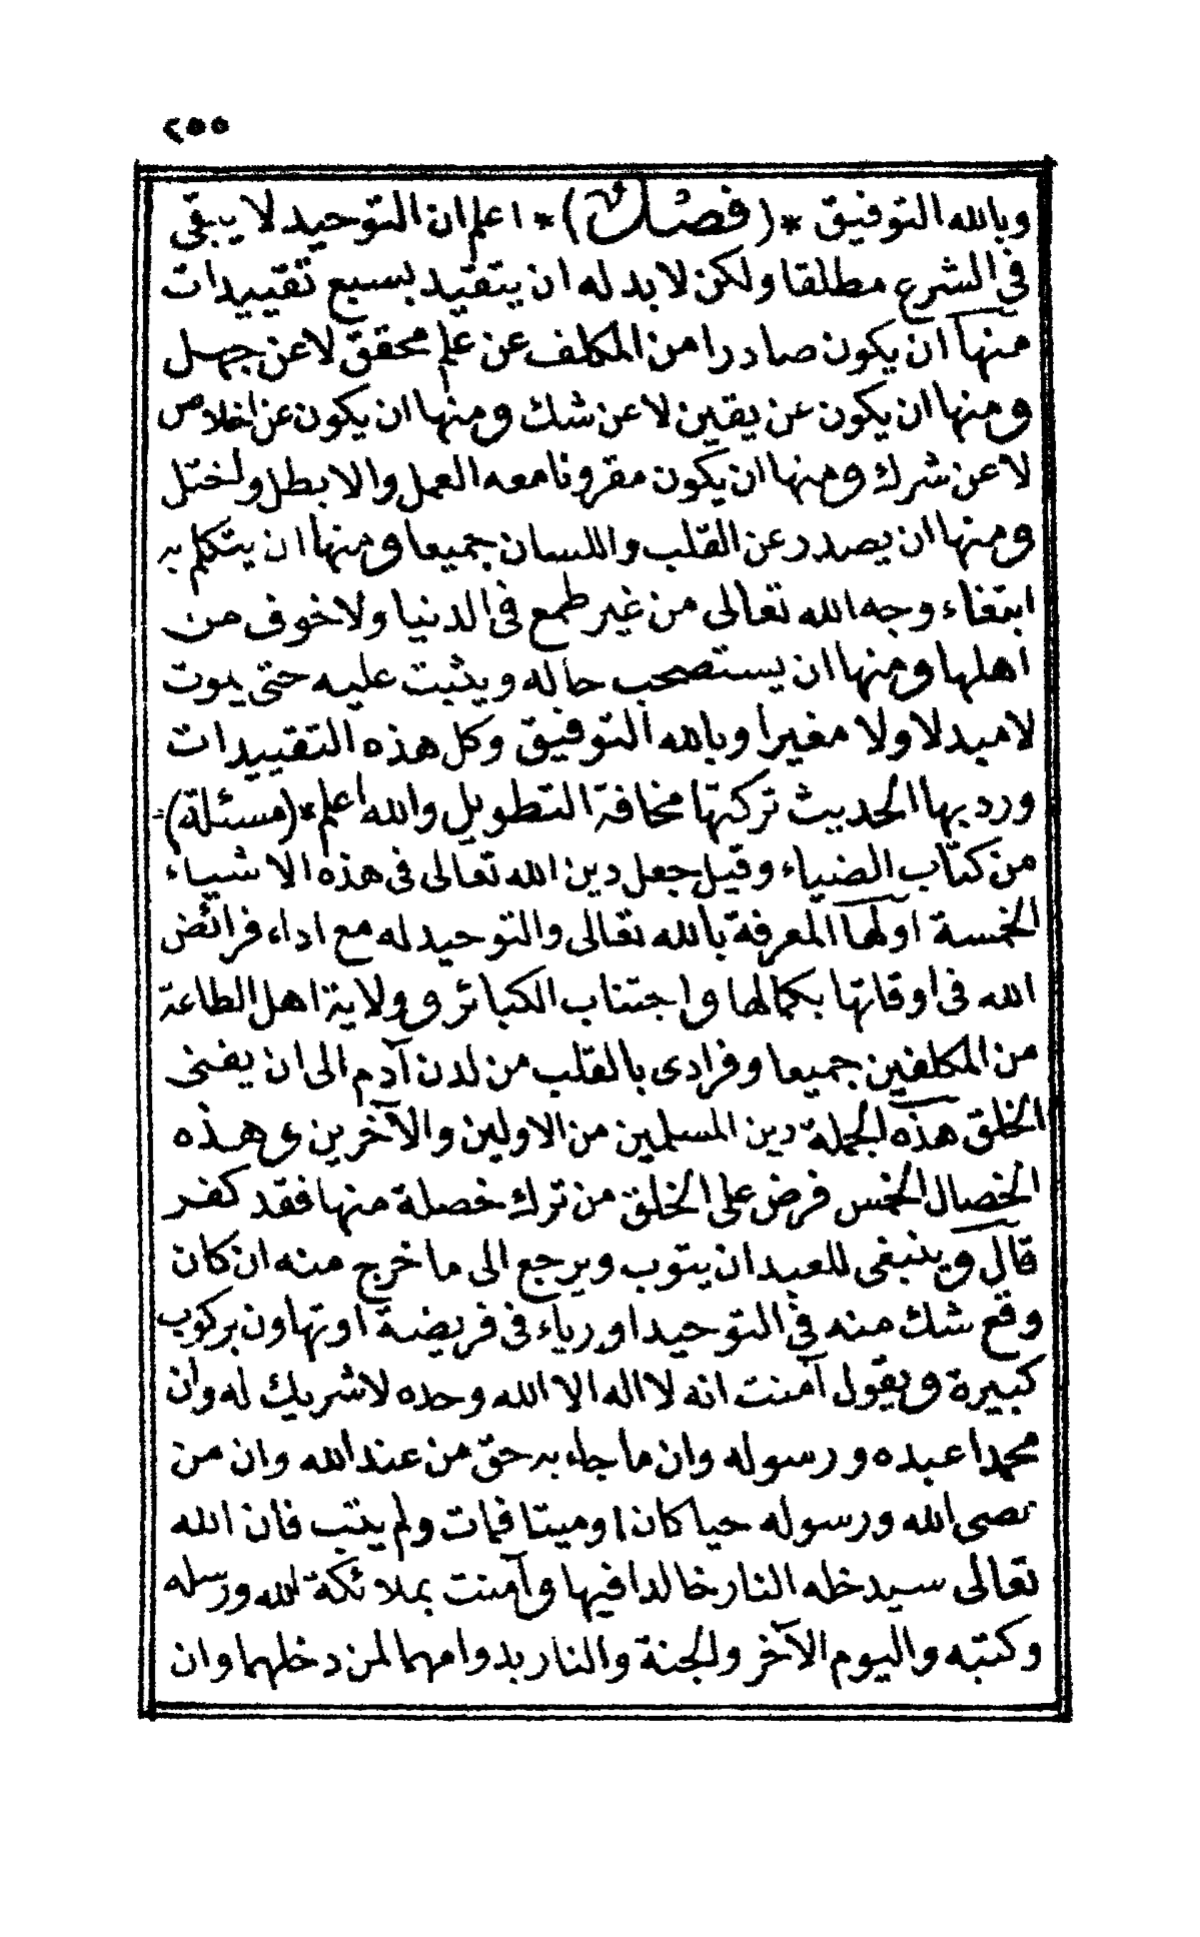 ٢٥٥
وبالله التوفيق *(فصل)* اعلم ان التوحيد لا يبقى
فى الشرع مطلقا ولكن لا بد له ان يتقيد بسبع تقييدات
منها ان يكون صادرا من المكلف عن علم محقق لا عن جهل
ومنها ان يكون عن يقين لا عن شك ومنها ان يكون عن اخلاص
لا عن شرك ومنها ان يكون مقرونا معه العمل والا بطل واختل
ومنها ان يصدر عن القلب واللسان جميعا ومنها ان يتكلم به
ابتغاء وجه الله تعالى من غير طمع فى الدنيا ولا خوف من
اهلها ومنها ان يستصحب حاله ويثبت عليه حتى يموت
لا مبدلا ولا مغيرا وبالله التوفيق وكل هذه التقييدات
ورد بها الحديث تركتها مخافة التطويل والله اعلم *(مسئلة)
من كتاب الضياء وقيل جعل دين الله تعالى فى هذه الاشياء
الخمسة اولها المعرفة بالله تعالى والتوحيد له مع اداء فرائض
الله فى اوقاتها بكمالها واجتناب الكبائر وولاية اهل الطاعة
من المكلفين جميعا وفرادى بالقلب من لدن آدم الى ان يفنى
الخلق هذه الجملة دين المسلمين من الاولين والآخرين وهذه
الخصال الخمس فرض على الخلق من ترك خصلة منها فقد كفر
قال وينبغى للعبد ان يتوب ويرجع الى ما خرج منه ان كان
وقع شك منه فى التوحيد او رياء فى فريضة او تهاون بركوب
كبيرة ويقول آمنت انه لا اله الا الله وحده لا شريك له وان
محمدا عبده ورسوله وان ما جاء به حق من عند الله وان من
عصى الله ورسوله حيا كان او ميتا فمات ولم يتب فان الله
تعالى سيدخله النار خالدا فيها وآمنت بملائكة الله ورسله
وكتبه واليوم الآخر والجنة والنار بدوامهما لمن دخلهما وان